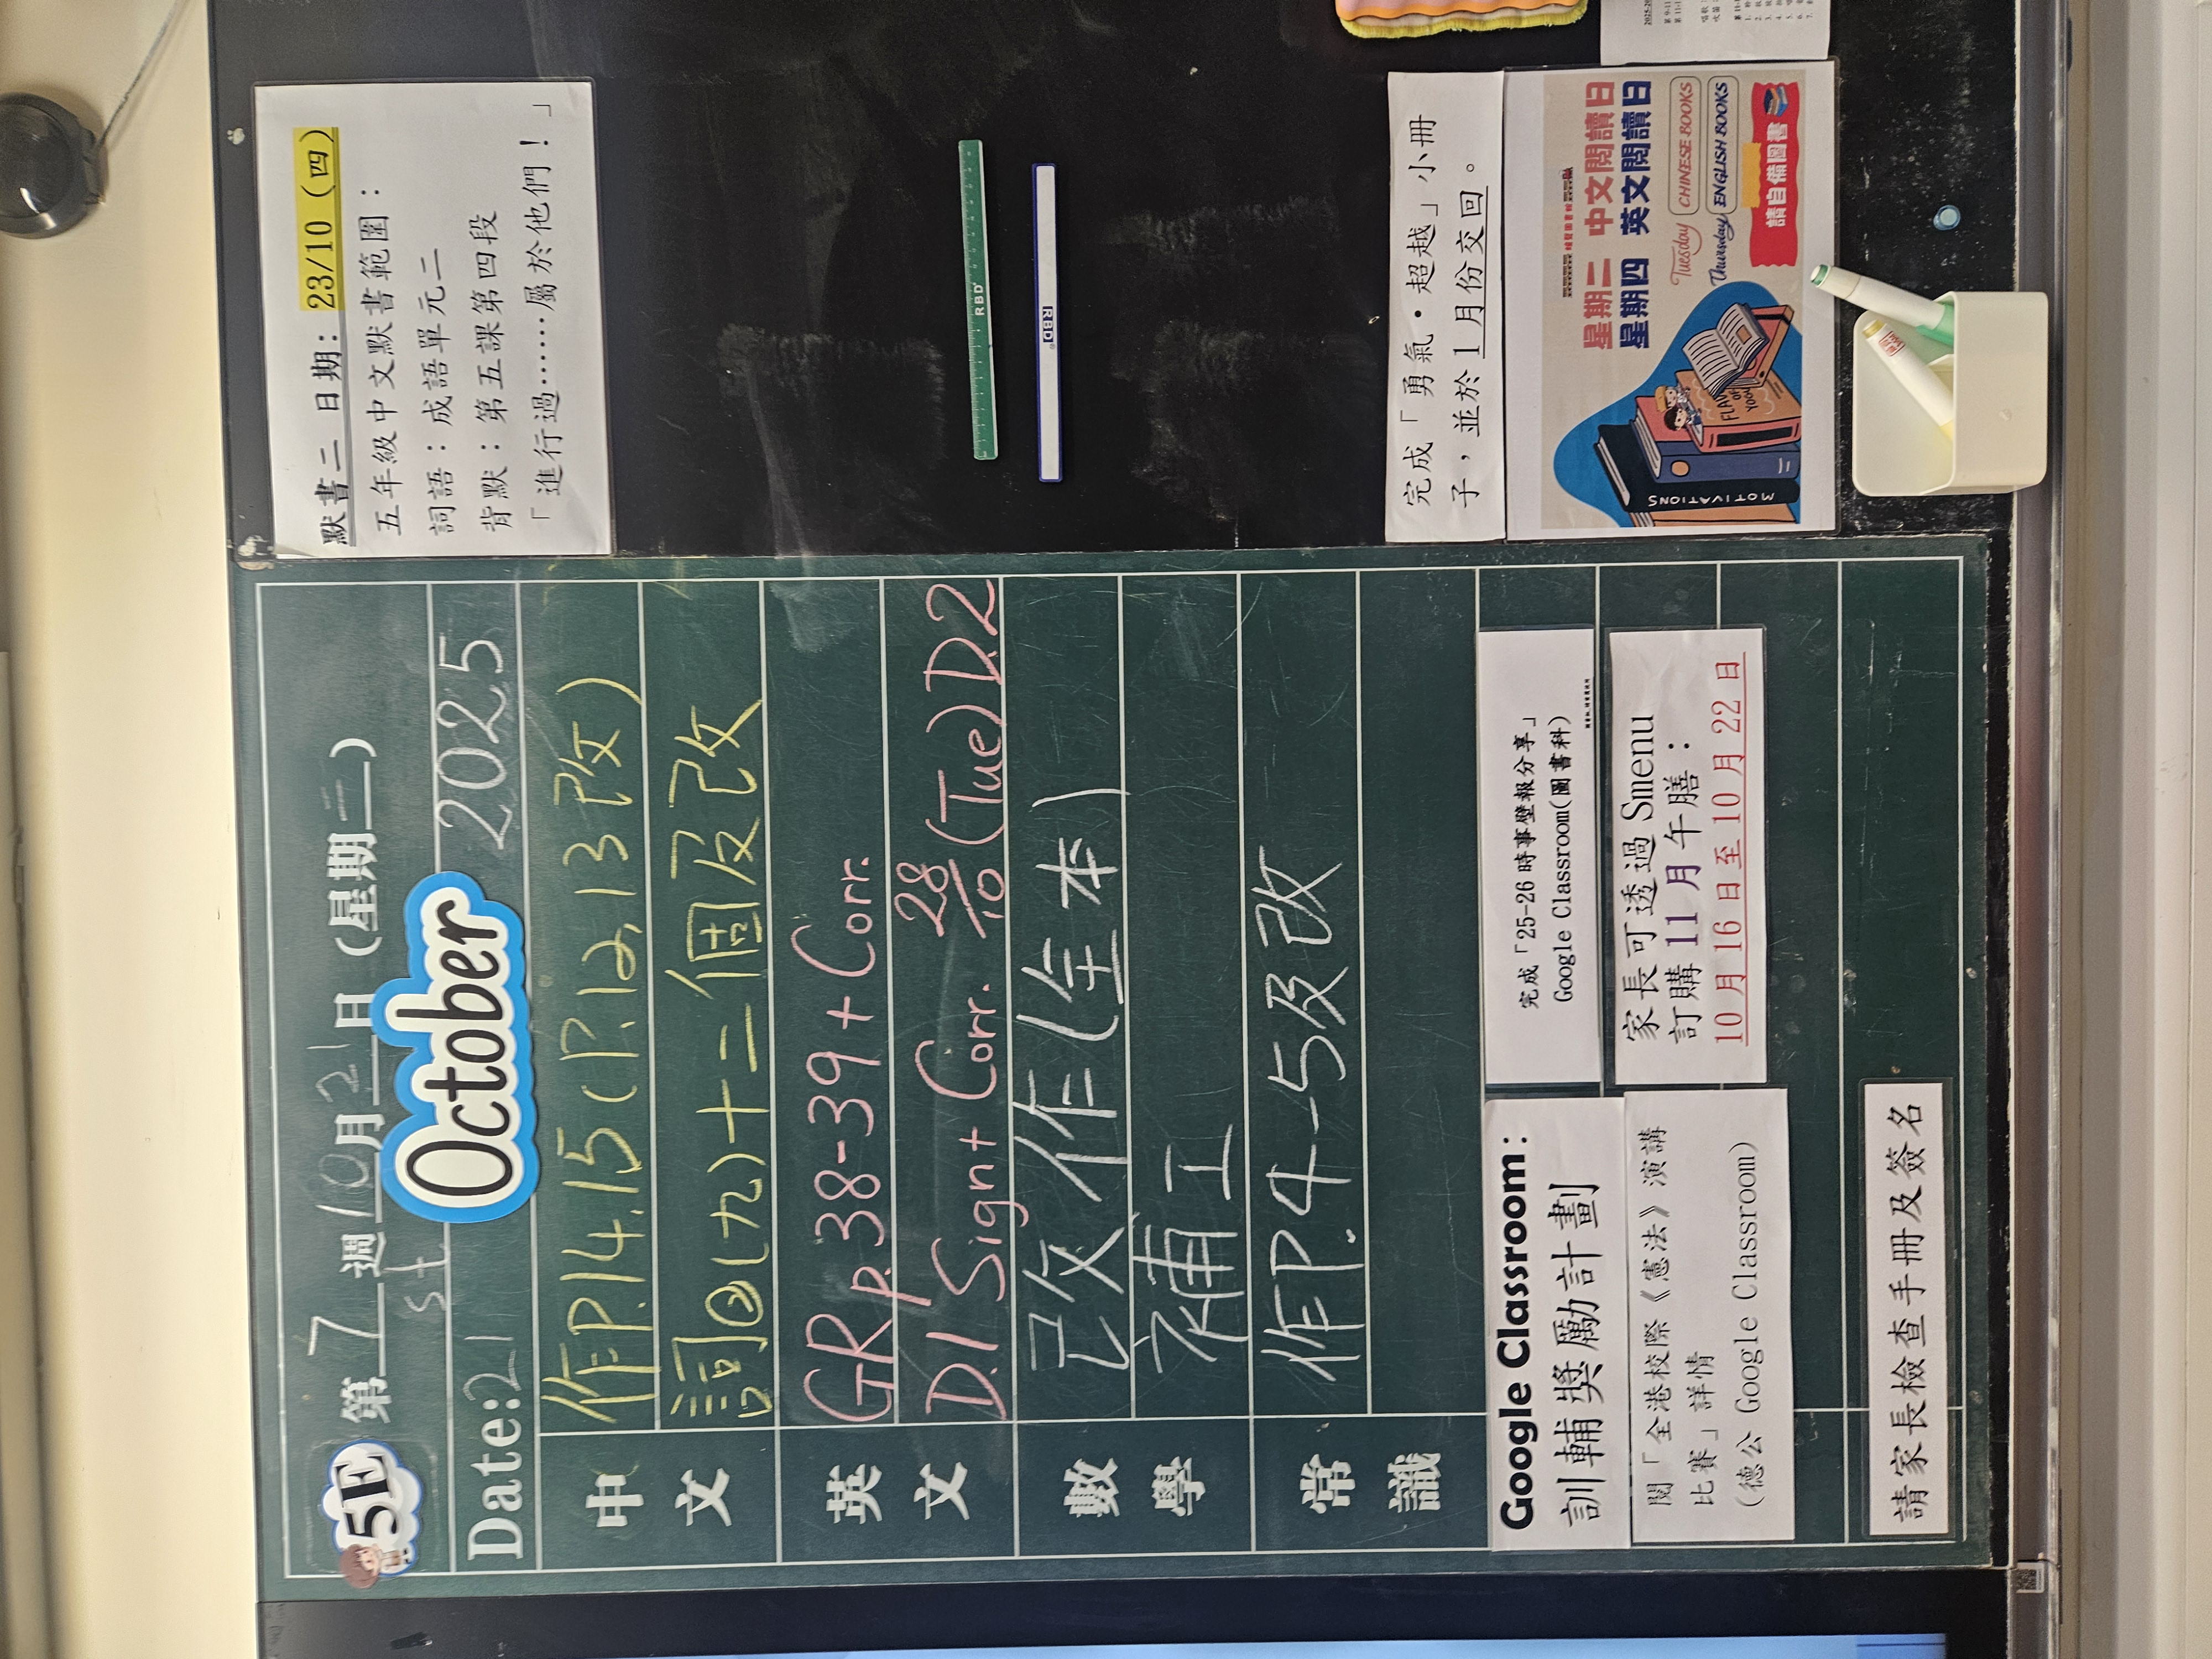 5E 第 7 週 10 月 21 日 (星期二)
Date: 21st October 2025
中文
作P.14.15(P.12,13改)
詞@(九)十二個及改
英文
GR p.38-39 + Corr.
D.1 Sign + Corr. 28/10 (Tue) D.2
數學
已交作(全本)
補工
常識
作P.4-5及改
Google Classroom:
訓輔獎勵計劃
完成「25-26時事壁報分享」
Google Classroom(圖書科)
閱「全港校際《憲法》演講
比賽」詳情
(德公 Google Classroom)
家長可透過 Smenu
訂購 11 月午膳:
10 月 16 日至 10 月 22 日
請家長檢查手冊及簽名
默書二 日期: 23/10 (四)
五年級中文默書範圍:
詞語:成語單元二
背默:第五課第四段
「進行過⋯⋯屬於他們!」
RBD
RBD
完成「勇氣•超越」小冊
子,並於 1 月份交回。
星期二 中文閱讀日
星期四 英文閱讀日
Tuesday CHINESE BOOKS
Thursday ENGLISH BOOKS
請自備圖書
MOTIVATIONS